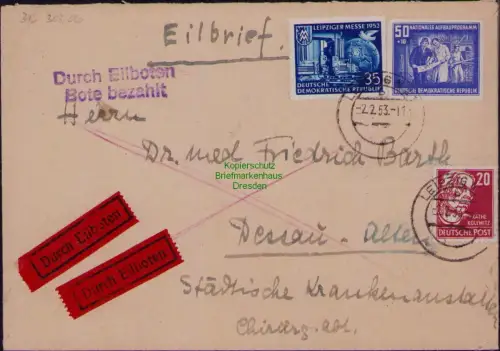 Eilbrief.
LEIPZIGER MESSE 1952
35
DEUTSCHE
DEMOKRATISCHE REPUBLIK
50
+10
NATIONALES AUFBAUPROGRAMM
DEUTSCHE DEMOKRATISCHE REPUBLIK
Durch Eilboten
Bote bezahlt
-2.2.53.-11
Herrn
Dr. med Friedrich Barth
Kopierschutz
Briefmarkenhaus
Dresden
20
KÄTHE
KOLLWITZ
DEUTSCHE POST
LEIPZIG
Dessau-Alten
Durch Eilboten
Durch Eilboten
Städtische Krankenanstalten
Chirurg. Abt.